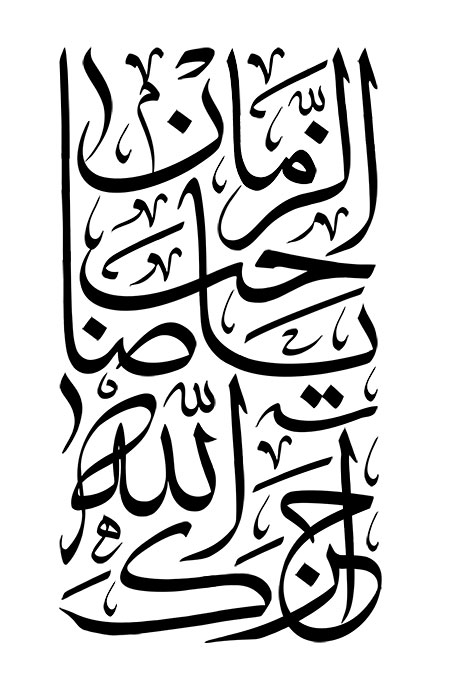 اجرک الله
یا صاحب
الزمان